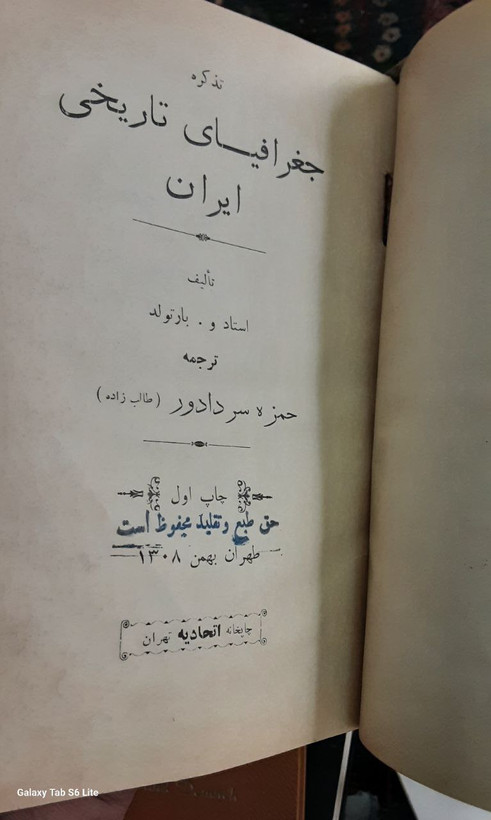 تذکره
جغرافیای تاریخی
ایران
تألیف
استاد و . بارتولد
ترجمه
حمزه سردادور (طالب زاده)
چاپ اول
حق طبع و تقلید محفوظ است
طهران بهمن ۱۳۰۸
چاپخانه اتحادیه تهران
Galaxy Tab S6 Lite